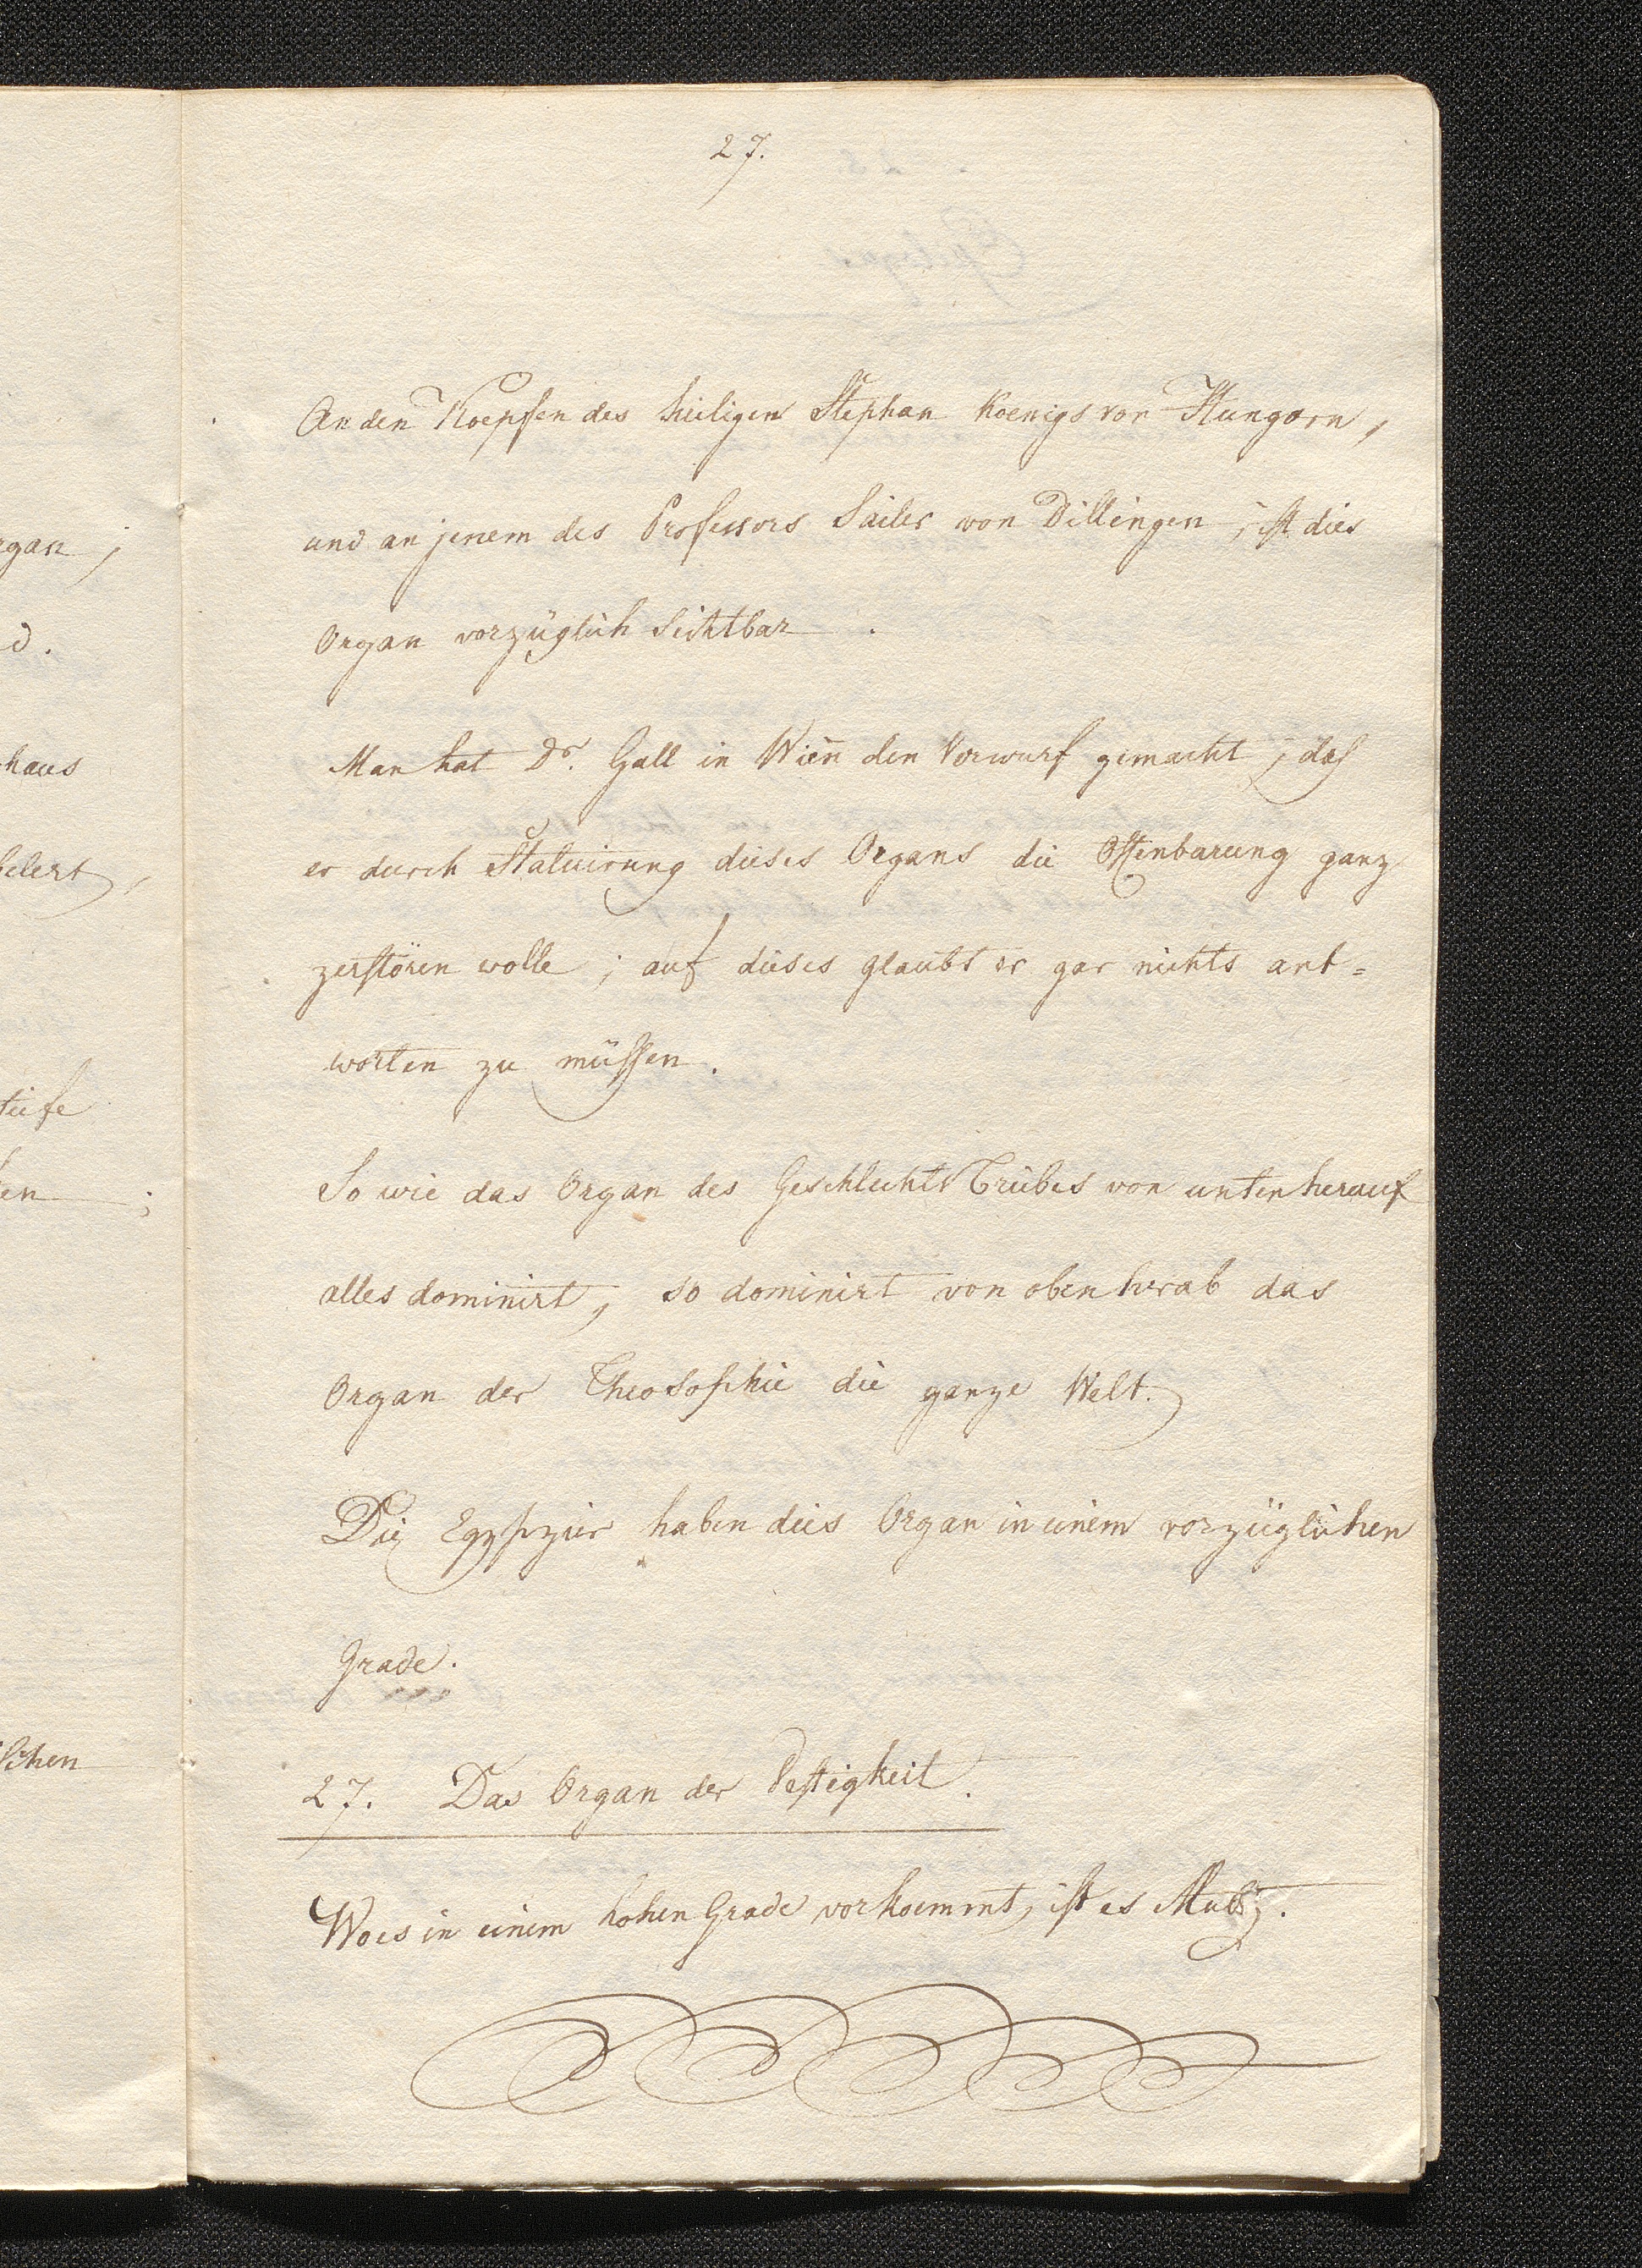 27.
An den Koepfen des heiligen Stephan Koenigs von Hungarn,
und an jenem des Professors Sailer von Dillingen, ist dies
Organ vorzüglich sichtbar.
Man hat Dr. Gall in Wien den Vorwurf gemacht, daß
er durch Statuirung dieses Organs die Offenbarung ganz
zerstören wolle; auf dieses glaubt er gar nichts ant=
worten zu müssen.
So wie das Organ des Geschlechts Triebes von unten herauf
alles dominirt, so dominirt von oben herab das
Organ der Theosophie die ganze Welt.
Die Egypzier haben dies Organ in einem vorzüglichen
Grade.
27. Das Organ der Festigkeit.
Wo es in einem hohen Grade vorkoemmt, ist es Muth.
rgan,
d.
haus
felert,
tiefe
en;
schen